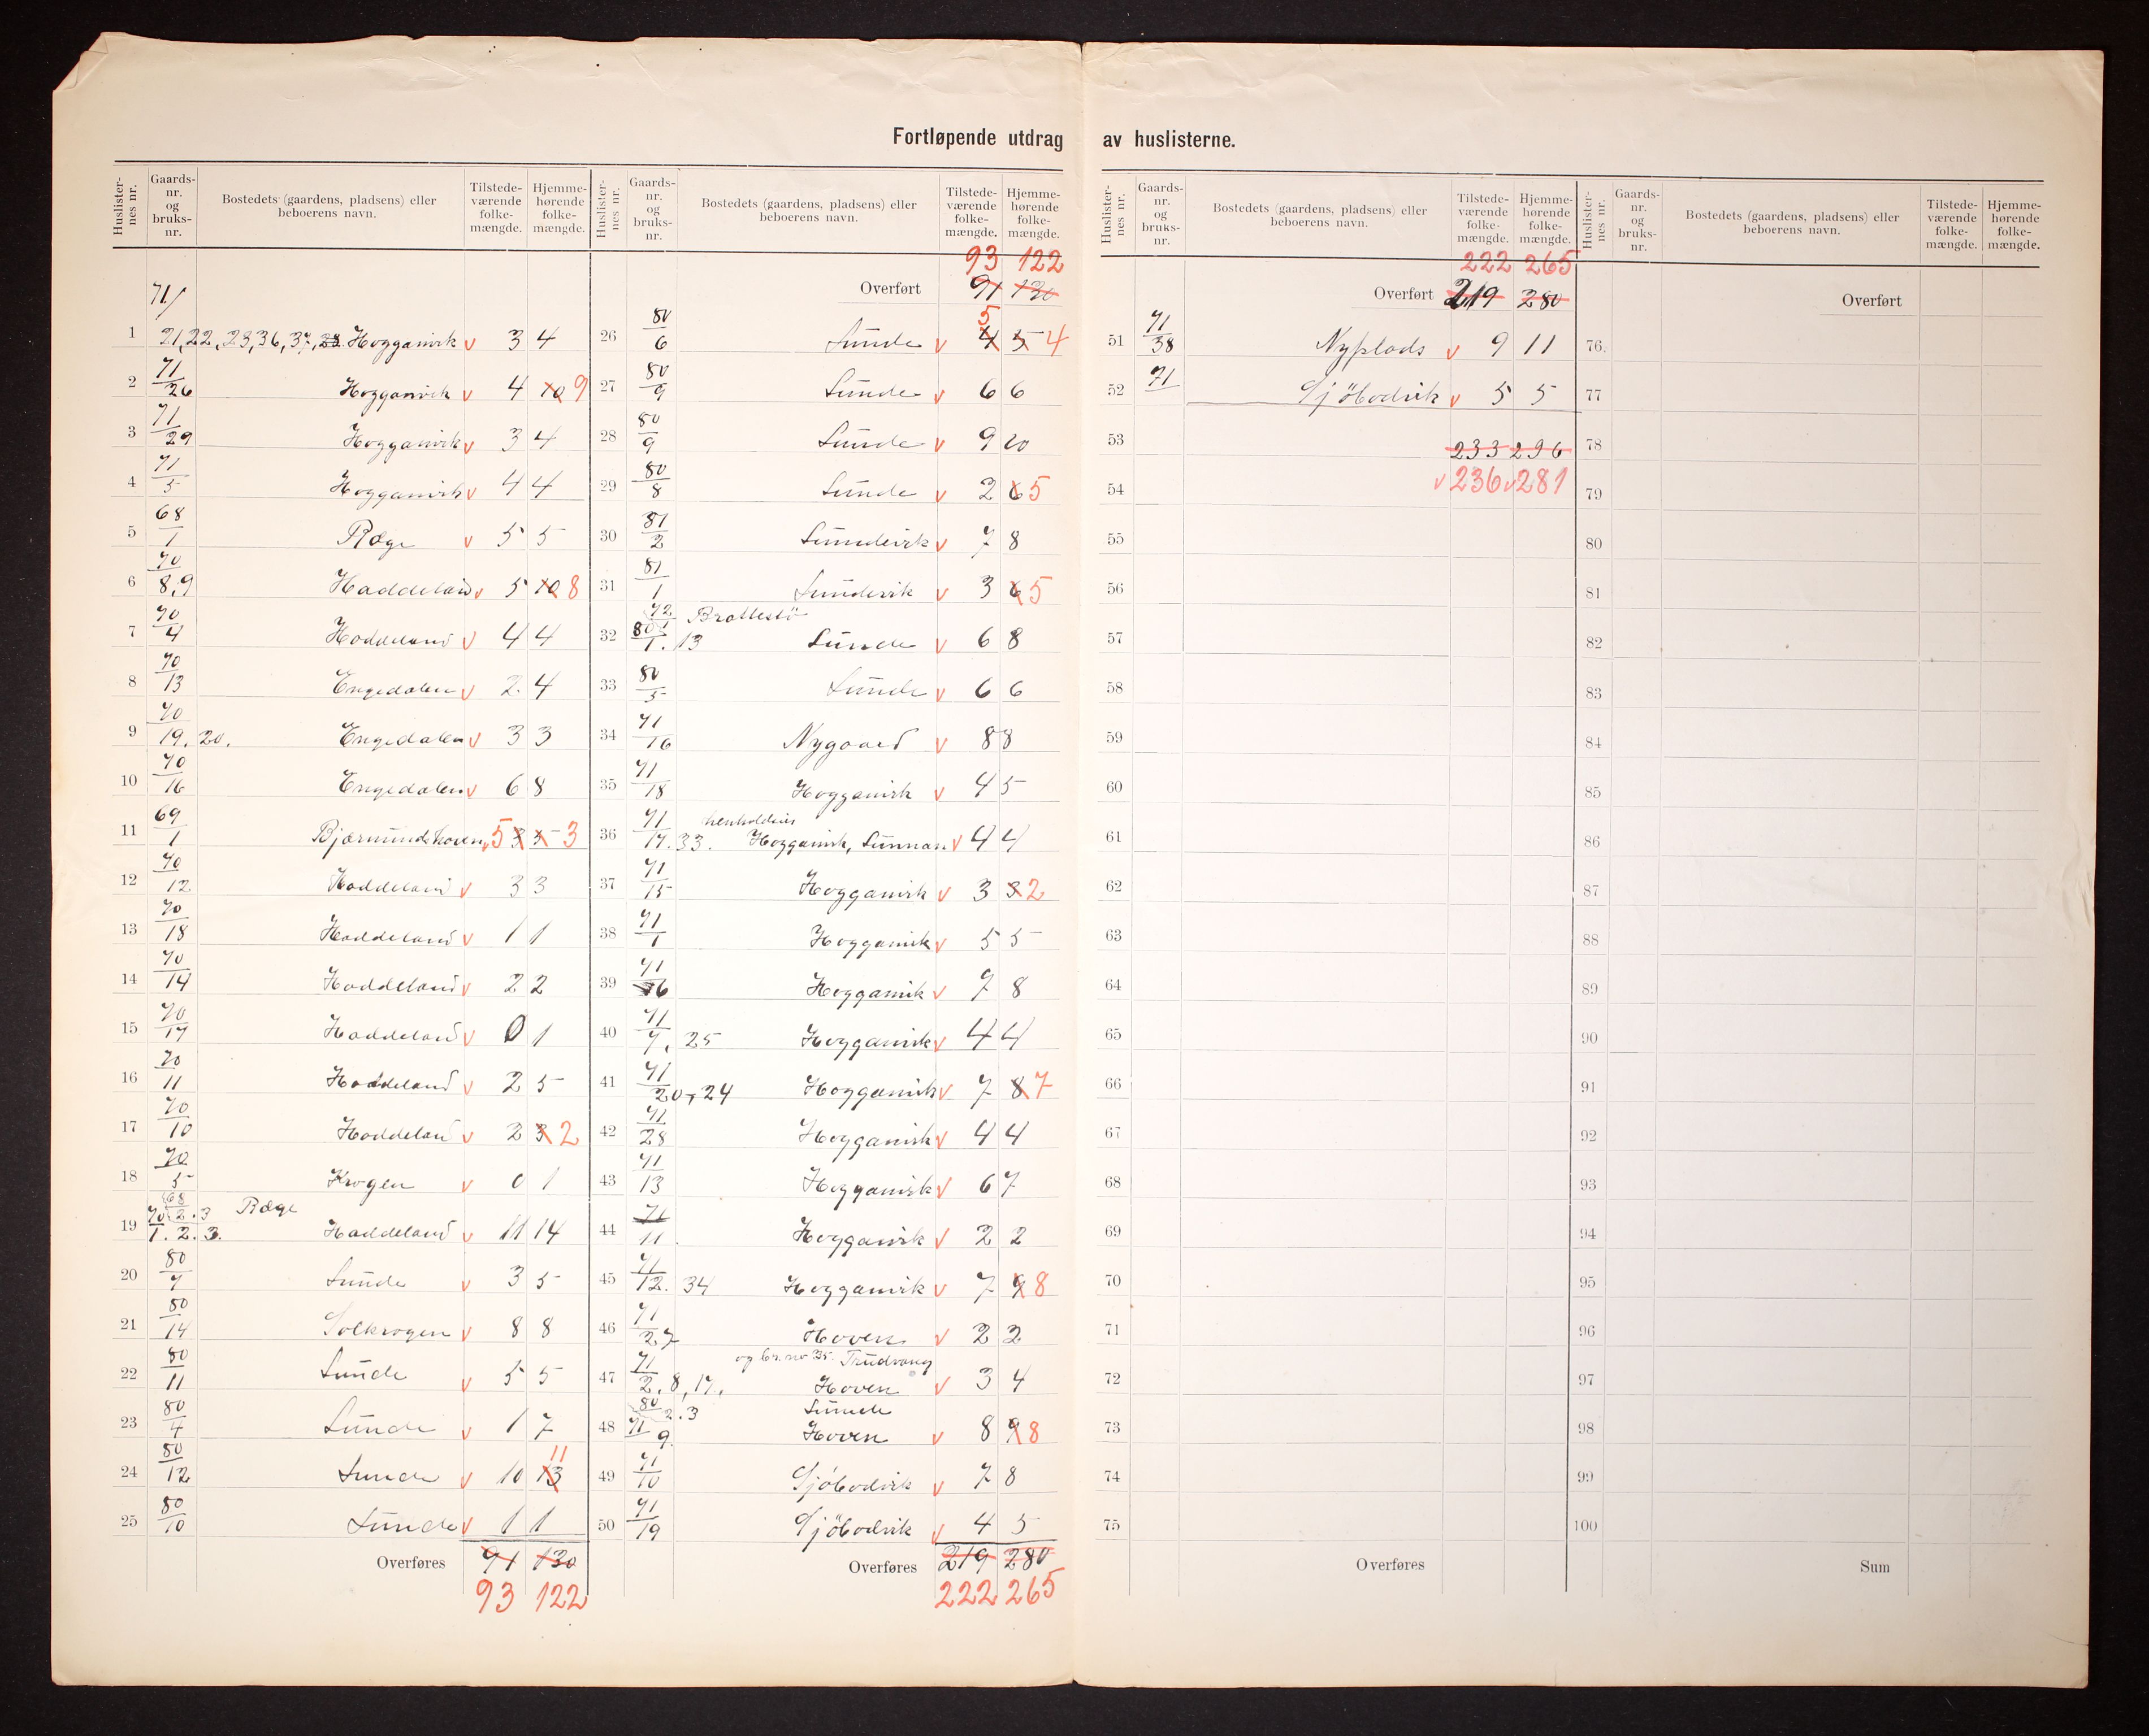 Fortløpende utdrag av huslisterne.
Huslister-nes nr. Gaards-nr. og bruks-nr. Bostedets (gaardens, pladsens) eller beboerens navn. Tilstede-værende folke-mængde. Hjemme-hørende folke-mængde.
71/
1 21,22,23,36,37,28. Hogganvik v 3 4
2 71/26 Hogganvik v 4 10 9
3 71/29 Hogganvik v 3 4
4 71/5 Hogganvik v 4 4
5 68/1 Ræge v 5 5
6 70/8,9 Haddeland v 5 10 8
7 70/4 Haddeland v 4 4
8 70/13 Engedalen v 2 4
9 70/19. 20. Engedalen v 3 3
10 70/16 Engedalen v 6 8
11 69/1 Bjærmundshoven v 5 3 5 3
12 70/12 Haddeland v 3 3
13 70/18 Haddeland v 1 1
14 70/14 Haddeland v 2 2
15 70/17 Haddeland v 0 1
16 70/11 Haddeland v 2 5
17 70/10 Haddeland v 2 3 2
18 70/5 Krogen v 0 1
68/2.3 Ræge
19 70/1.2.3. Haddeland v 11 14
20 80/7 Lunde v 3 5
21 80/14 Solkrogen v 8 8
22 80/11 Lunde v 5 5
23 80/4 Lunde v 1 7
24 80/12 Lunde v 10 13 11
25 80/10 Lunde v 1 1
Overføres 91 130
93 122
Huslister-nes nr. Gaards-nr. og bruks-nr. Bostedets (gaardens, pladsens) eller beboerens navn. Tilstede-værende folke-mængde. Hjemme-hørende folke-mængde.
93 122
Overført 91 130
26 80/6 Lunde v 4 5 5 4
27 80/9 Lunde v 6 6
28 80/9 Lunde v 9 10
29 80/8 Lunde v 2 6 5
30 81/2 Lundevik v 7 8
31 81/1 Lundevik v 3 6 5
72/1 Brattestö
32 80/1. 13 Lunde v 6 8
33 80/5 Lunde v 6 6
34 71/16 Nygaard v 8 8
35 71/18 Hogganvik v 4 5
henholdsvis
36 71/14. 33. Hogganvik, Sunnan v 4 4
37 71/15 Hogganvik v 3 3 2
38 71/1 Hogganvik v 5 5
39 71/6 Hogganvik v 7 8
40 71/7, 25 Hogganvik v 4 4
41 71/20, 24 Hogganvik v 7 8 7
42 71/28 Hogganvik v 4 4
43 71/13 Hogganvik v 6 7
44 71/11 Hogganvik v 2 2
45 71/12. 34 Hogganvik v 7 9 8
46 71/27 Hoven v 2 2
og br.nr 35. Trudvang
47 71/2, 8, 17, Hoven v 3 4
80/2.3 Lunde
48 71/9. Hoven v 8 9 8
49 71/10 Sjöbodvik v 7 8
50 71/19 Sjöbodvik v 4 5
Overføres 219 280
222 265
Huslister-nes nr. Gaards-nr. og bruks-nr. Bostedets (gaardens, pladsens) eller beboerens navn. Tilstede-værende folke-mængde. Hjemme-hørende folke-mængde.
222 265
Overført 219 280
51 71/38 Nyplads v 9 11
52 71/ Sjöbodvik v 5 5
53 233 296
54 v 236 v 281
55
56
57
58
59
60
61
62
63
64
65
66
67
68
69
70
71
72
73
74
75
Overføres
Huslister-nes nr. Gaards-nr. og bruks-nr. Bostedets (gaardens, pladsens) eller beboerens navn. Tilstede-værende folke-mængde. Hjemme-hørende folke-mængde.
Overført
76.
77
78
79
80
81
82
83
84
85
86
87
88
89
90
91
92
93
94
95
96
97
98
99
100
Sum